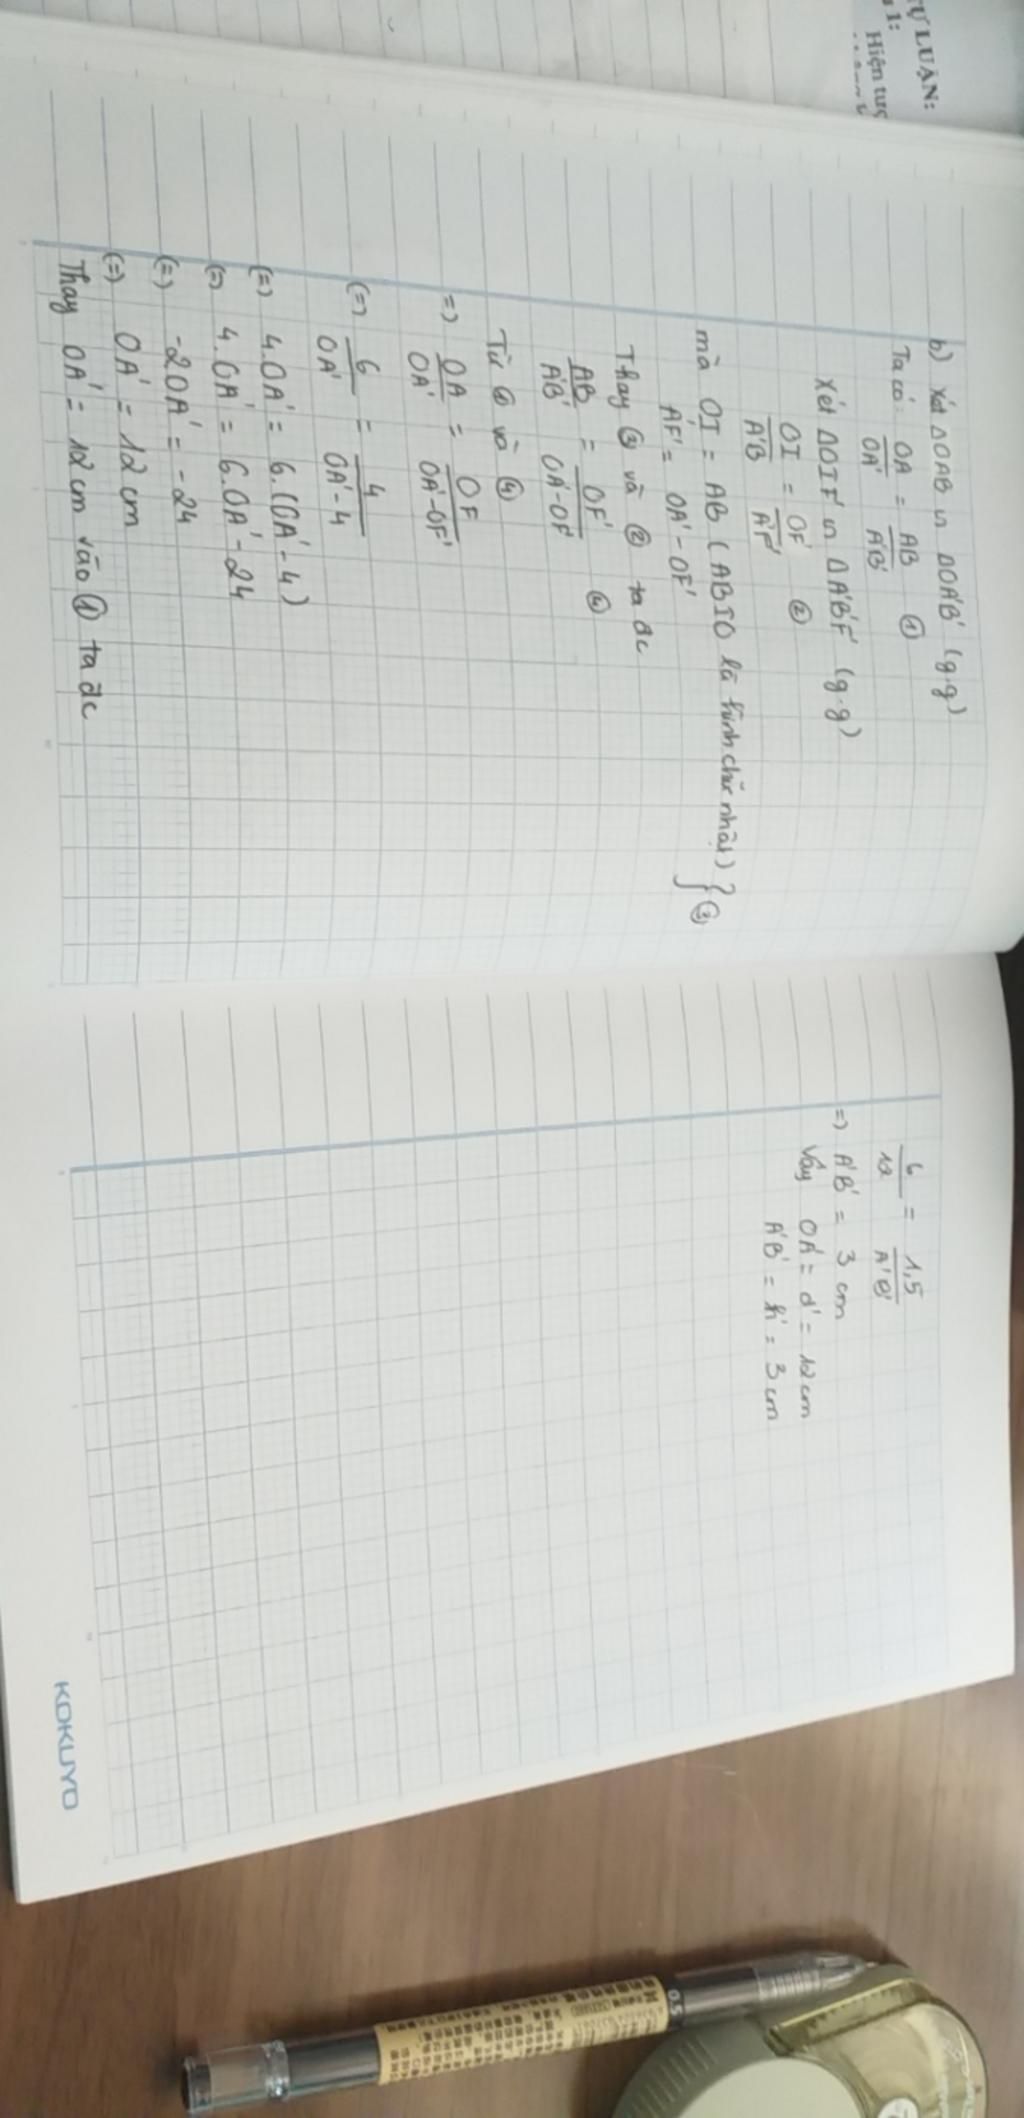 TỰ LUẬN:
1:
Hiện tượ
b) Xét ΔOAB ∽ ΔOA'B' (g.g)
Ta có: OA/OA' = AB/A'B' ①
Xét ΔOIF' ∽ ΔA'B'F' (g.g)
OI/A'B' = OF'/A'F' ②
mà OI = AB (ABIO là hình chữ nhật) } ③
A'F' = OA' - OF'
Thay ③ và ② ta đc
AB/A'B' = OF'/OA'-OF' ④
Từ ① và ④
=) OA/OA' = OF/OA'-OF'
(=) 6/OA' = 4/OA'-4
(=) 4.OA' = 6.(OA'-4)
(=) 4.OA' = 6.OA'-24
(=) -2OA' = -24
(=) OA' = 12 cm
Thay OA' = 12 cm vào ① ta đc
6/12 = 1,5/A'B'
=) A'B' = 3 cm
Vậy OA' = d' = 12 cm
A'B' = h' = 3 cm
KOKUYO
0.5